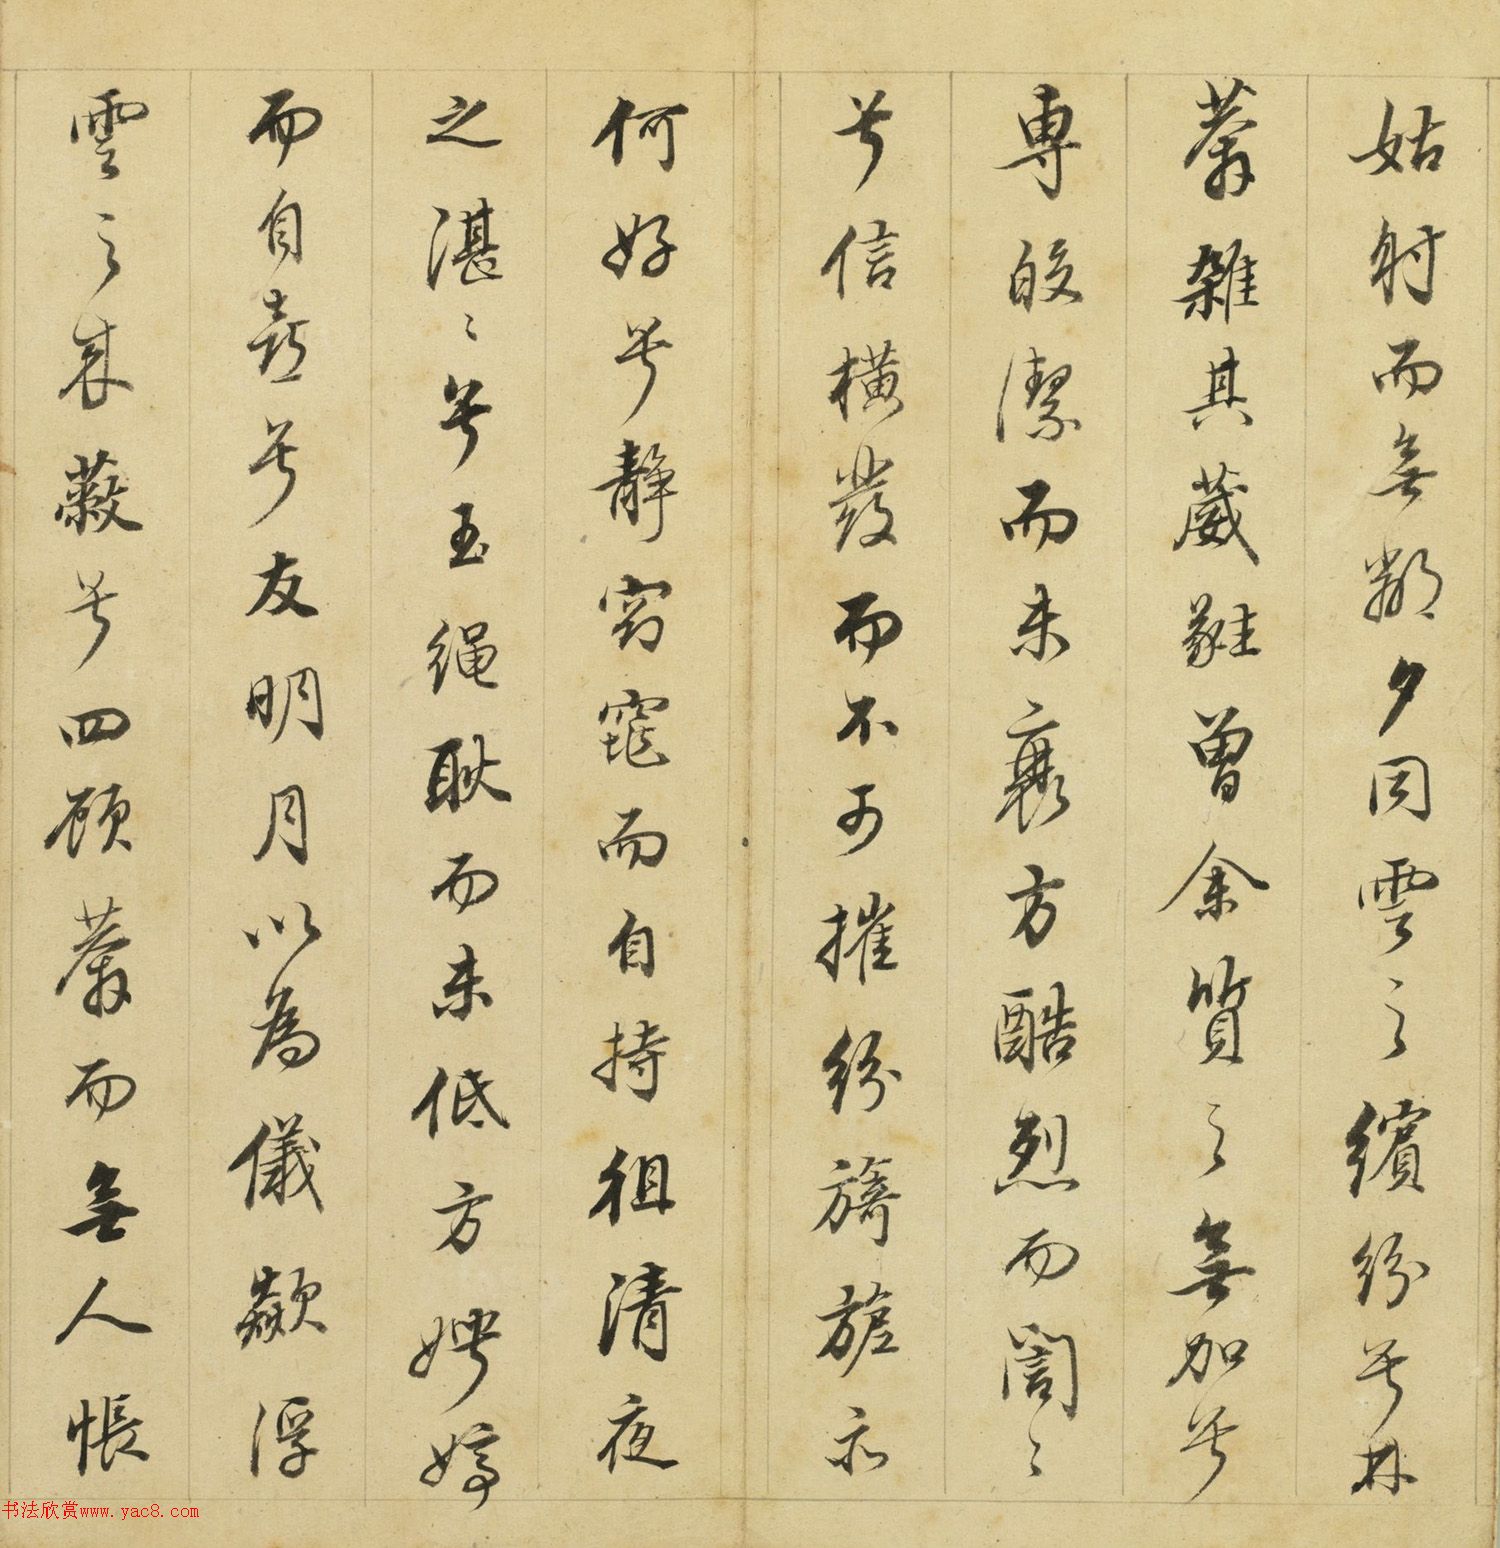 姑射而無鄰夕同雲之繽紛兮林
莽雜其葳蕤曾余質之無加兮
專皎潔而未衰方酷烈而誾〻
兮信橫發而不可摧紛旖旎亦
何好兮靜窈窕而自持徂清夜
之湛〻兮玉繩耿而未低方娉婷
而自喜兮友明月以為儀歘浮
雲之來蔽兮四顧莽而無人悵
书法欣赏www.yac8.com